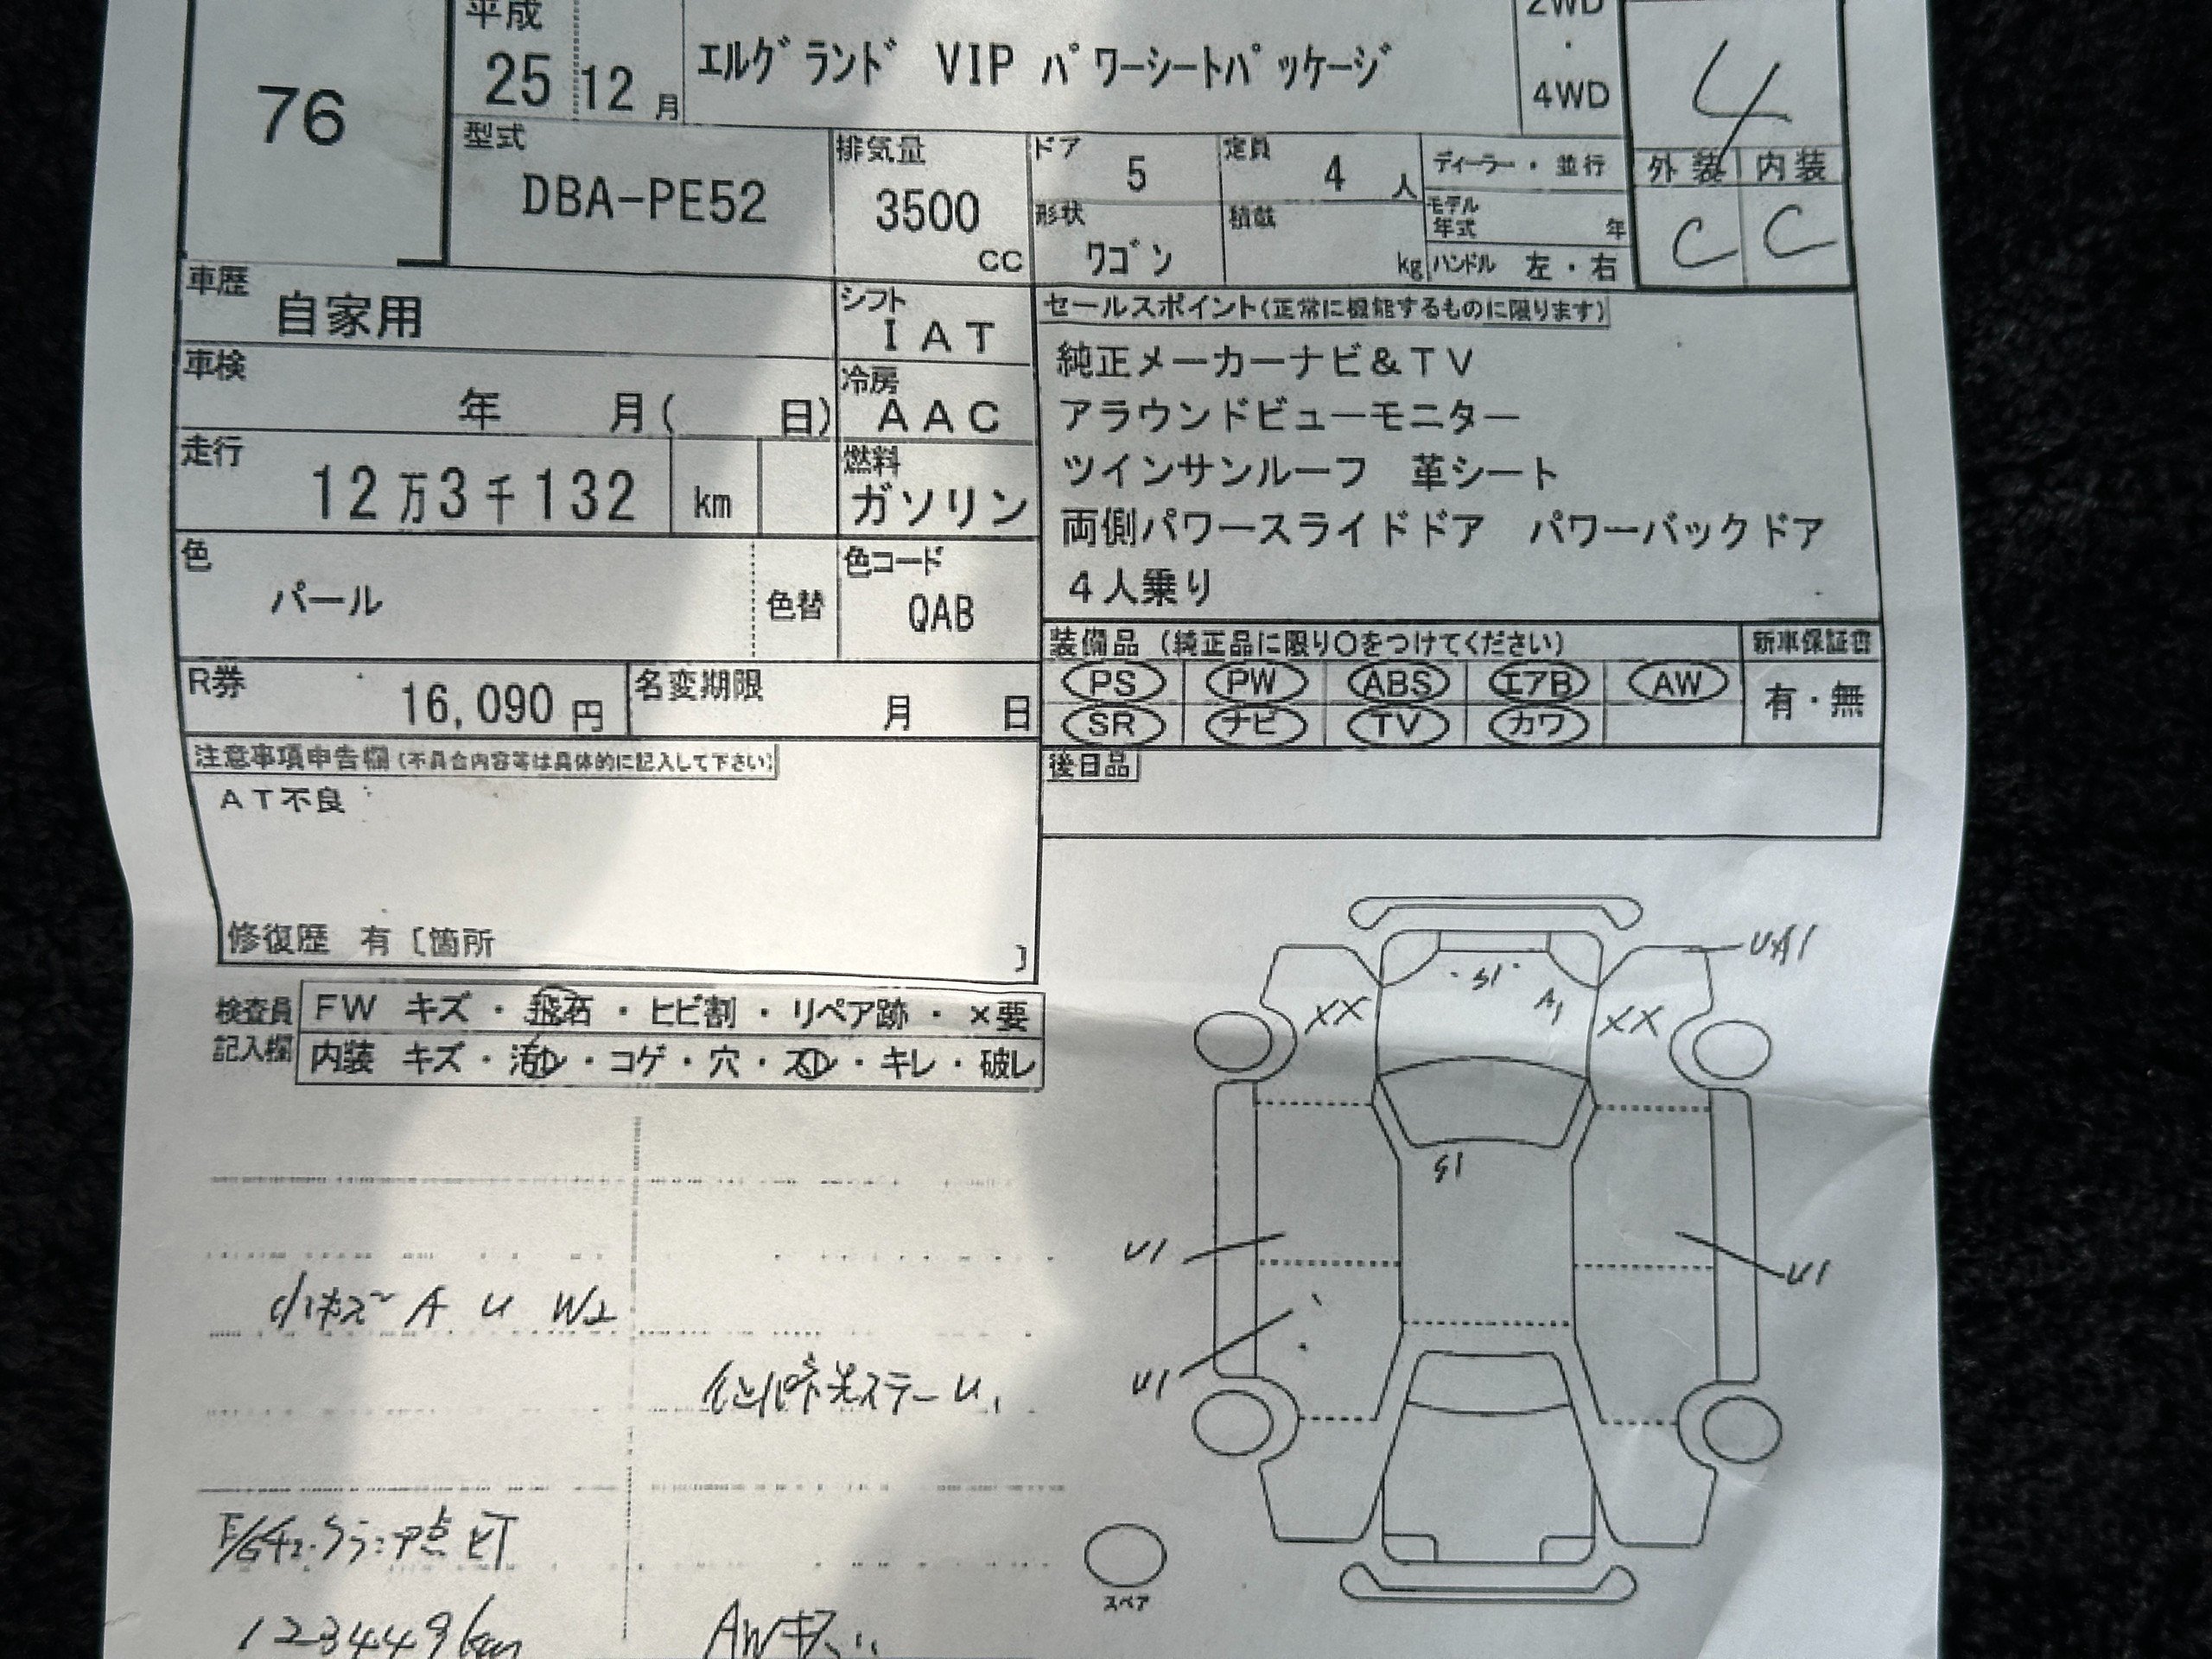 平成
2WD
・
4WD
76
25 12 月
エルグランド VIP パワーシートパッケージ
4
型式
DBA-PE52
排気量
3500
cc
ドア
5
定員
4 人
ディーラー・並行
外装 内装
形状
ワゴン
積載
kg
モデル
年式 年
ハンドル 左・右
C C
車歴
自家用
シフト
IAT
セールスポイント(正常に機能するものに限ります)
車検
年 月( 日)
冷房
AAC
純正メーカーナビ&TV
アラウンドビューモニター
走行
12万3千132 km
燃料
ガソリン
ツインサンルーフ 革シート
両側パワースライドドア パワーバックドア
4人乗り
色
パール
色替
色コード
QAB
装備品 (純正品に限り○をつけてください)
新車保証書
R券
16,090 円
名変期限
月 日
PS PW ABS エアB AW
SR ナビ TV カワ
有・無
注意事項申告欄(不具合内容等は具体的に記入して下さい)
後日品
AT不良
修復歴 有〔箇所 〕
検査員
記入欄
FW キズ・飛石・ヒビ割・リペア跡・×要
内装 キズ・汚レ・コゲ・穴・スレ・キレ・破レ
UA1
S1
A1
XX XX
S1
U1
U1
U1
小キズ A U W2
AWキズ
123449km
スペア